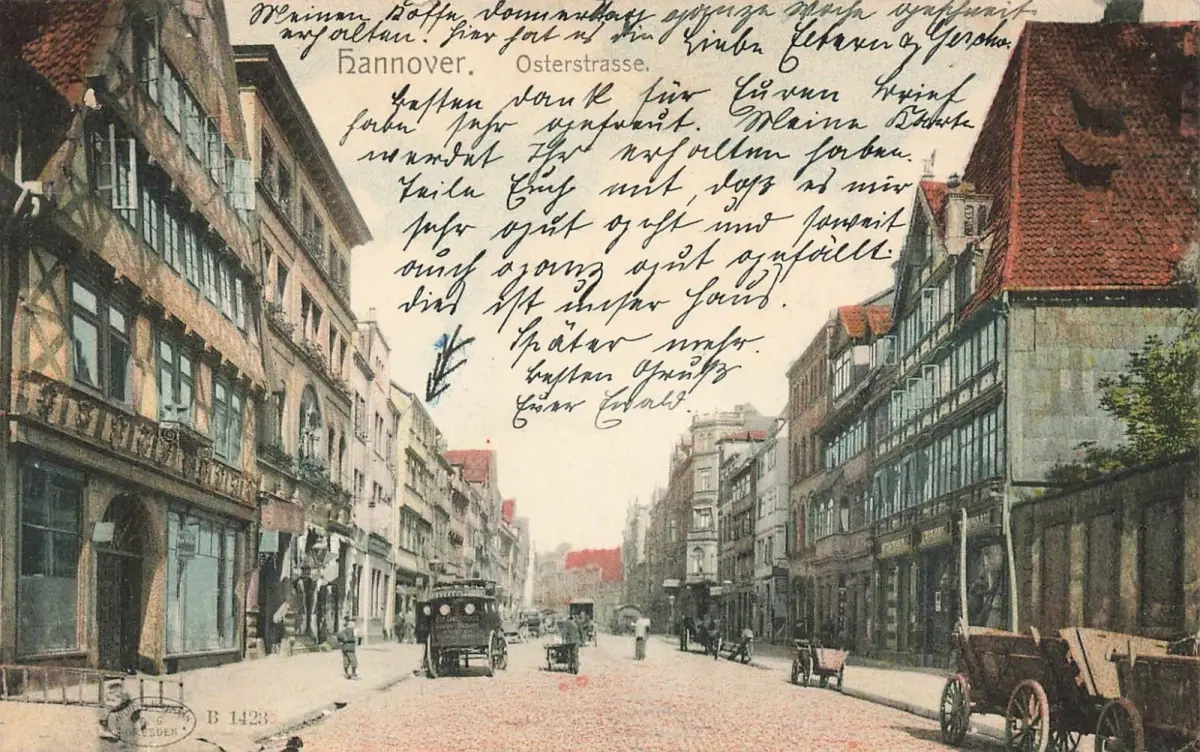 Meinen Koffer Donnerstag ganze Woche geschneit.
erhalten. Hier hat es die
Liebe Eltern u. Geschw.
Hannover. Osterstrasse.
Besten Dank für Euren Brief
habe sehr gefreut. Meine Karte
werdet Ihr erhalten haben.
Teile Euch mit, daß es mir
sehr gut geht und soweit
auch ganz gut gefällt.
dies ist unser Haus.
Später mehr.
Besten Gruß
Euer Ewald
DRESDEN
B 1423